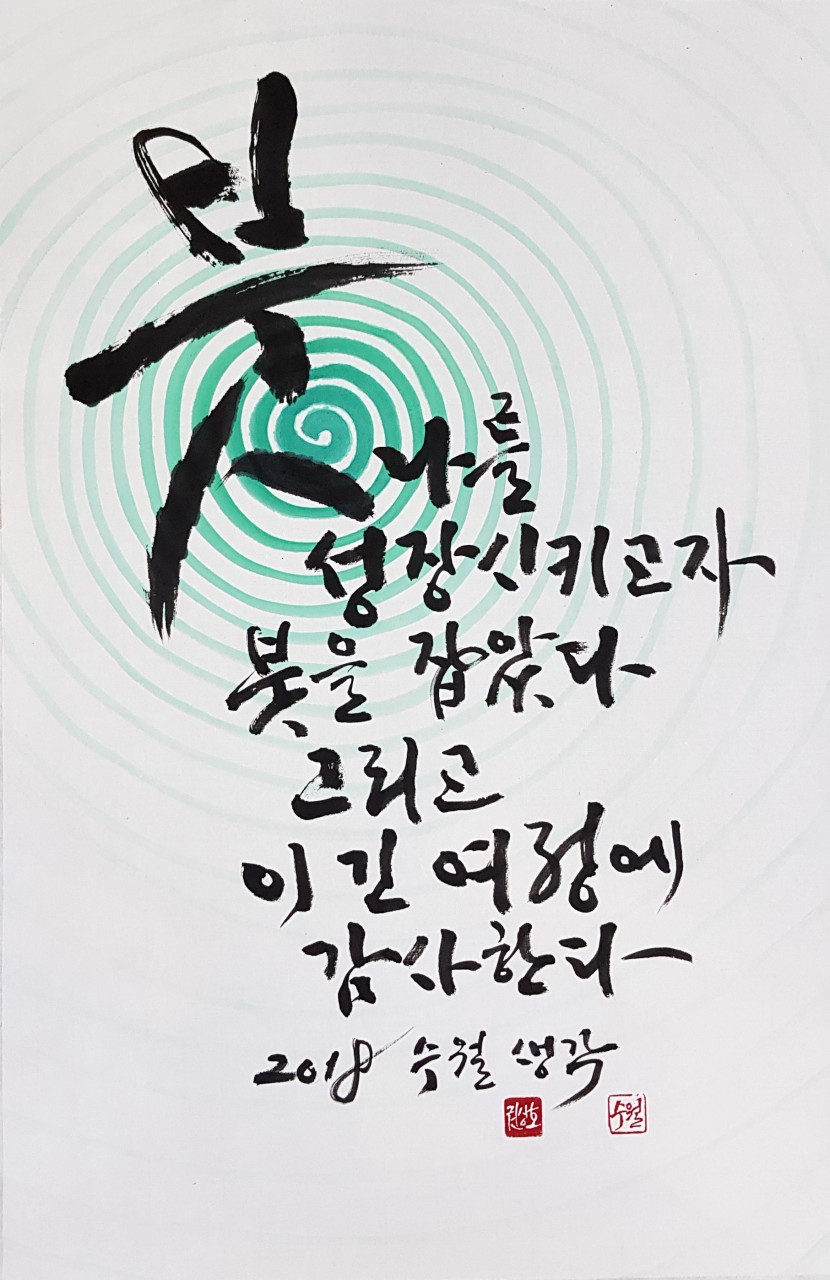 붓
나를
성장시키고자
붓을 잡았다
그리고
이 긴 여정에
감사한다
2018 수월 생각
수월